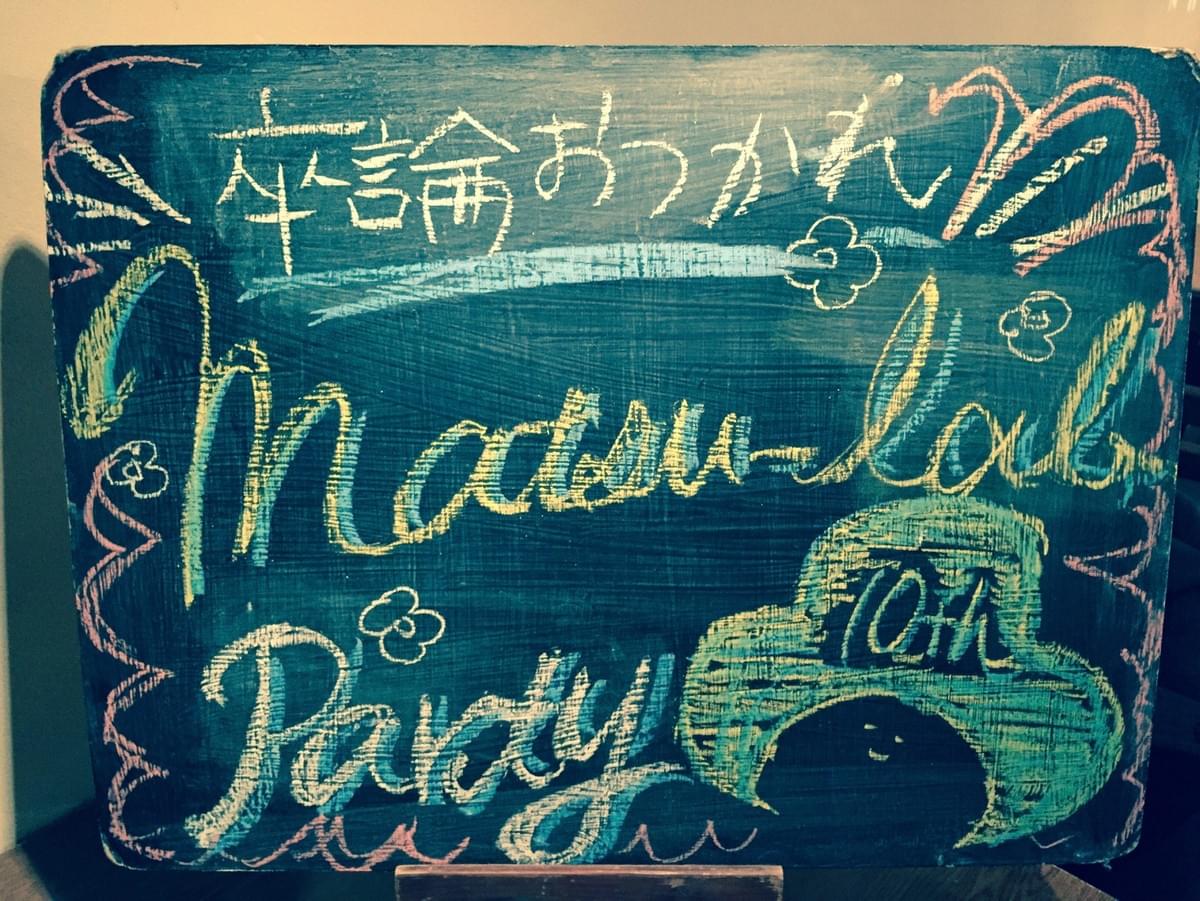 卒論おつかれ
Matsu-lab
Party
10th